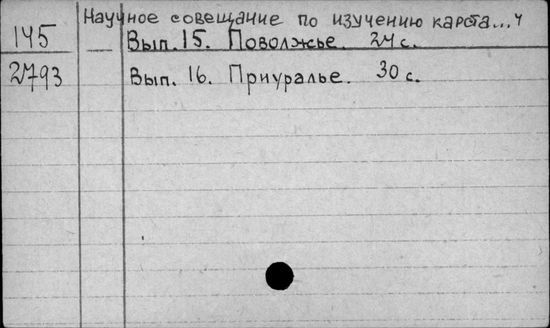 Научное совещание по изучению карста... 4
145 Вып. 15. Поволжье. 24 с.
2793 Вып. 16. Приуралье. 30 с.